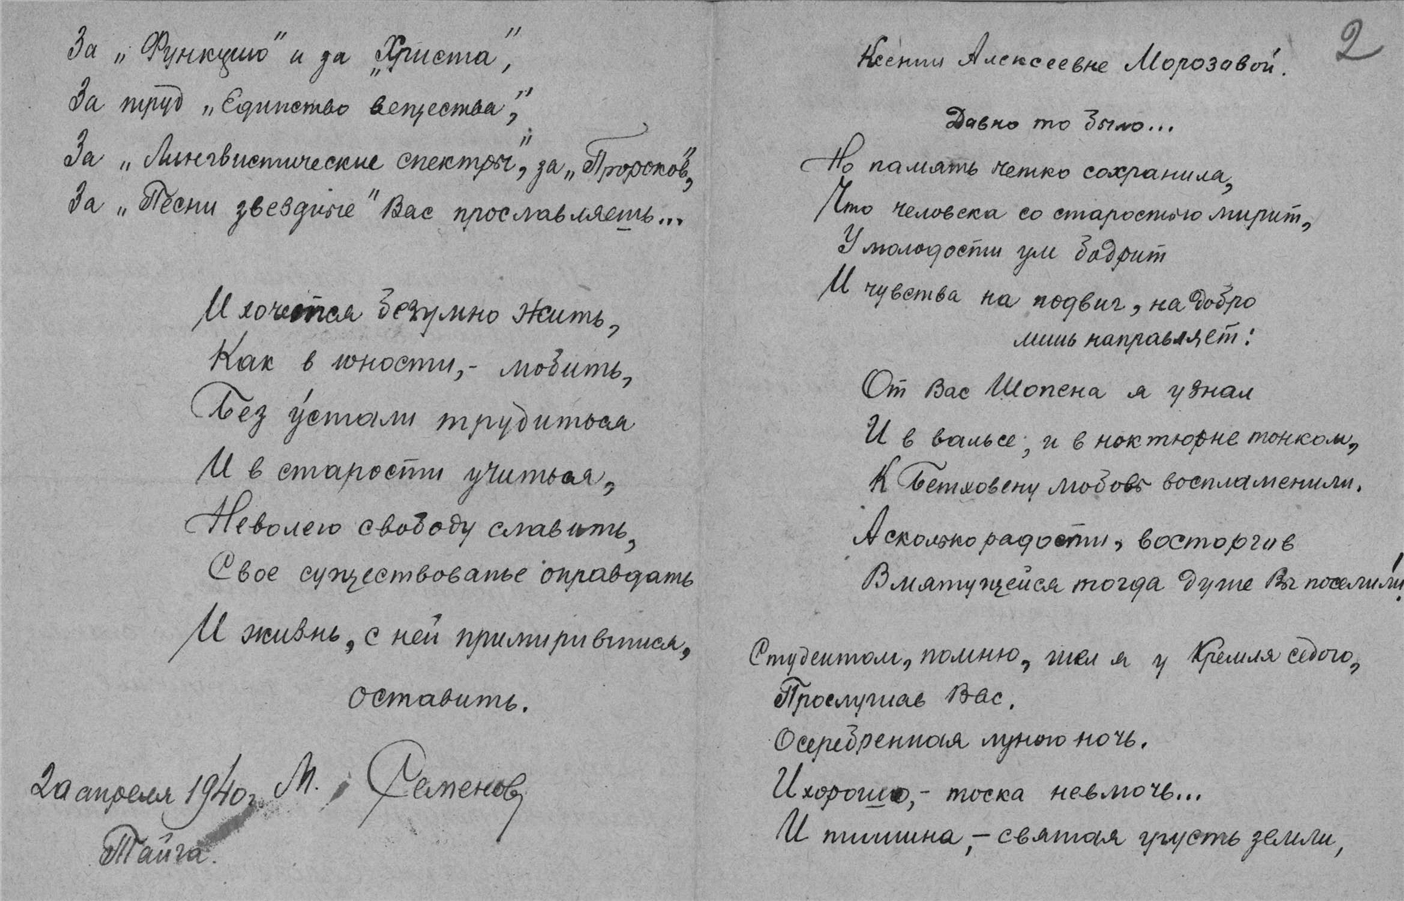 За „Функцию“ и за „Христа“,
За труд „Единство вещества“,
За „Лингвистические спектры“, за „Пророков“,
За „Песни звездные“ Вас прославлять...
И хочется безумно жить,
Как в юности,- любить,
Без устали трудиться
И в старости учиться,
Неволею свободу славить,
Свое существованье оправдать
И жизнь, с ней примирившися,
оставить.
2го апреля 1940г. М. Семенов
Тайга.
2
Ксении Алексеевне Морозовой.
Давно то было...
Но память четко сохранила,
Что человека со старостью мирит,
У молодости ум бодрит
И чувства на подвиг, на добро
лишь направляет:
От Вас Шопена я узнал
И в вальсе, и в ноктюрне тонком,
К Бетховену любовь воспламенили.
А сколько радости, восторгов
В мятущейся тогда душе Вы поселили!
Студентом, помню, шел я у Кремля седого,
Прослушав Вас.
Осеребренная луною ночь.
И хорошо,- тоска невмочь...
И тишина,- святая грусть земли,